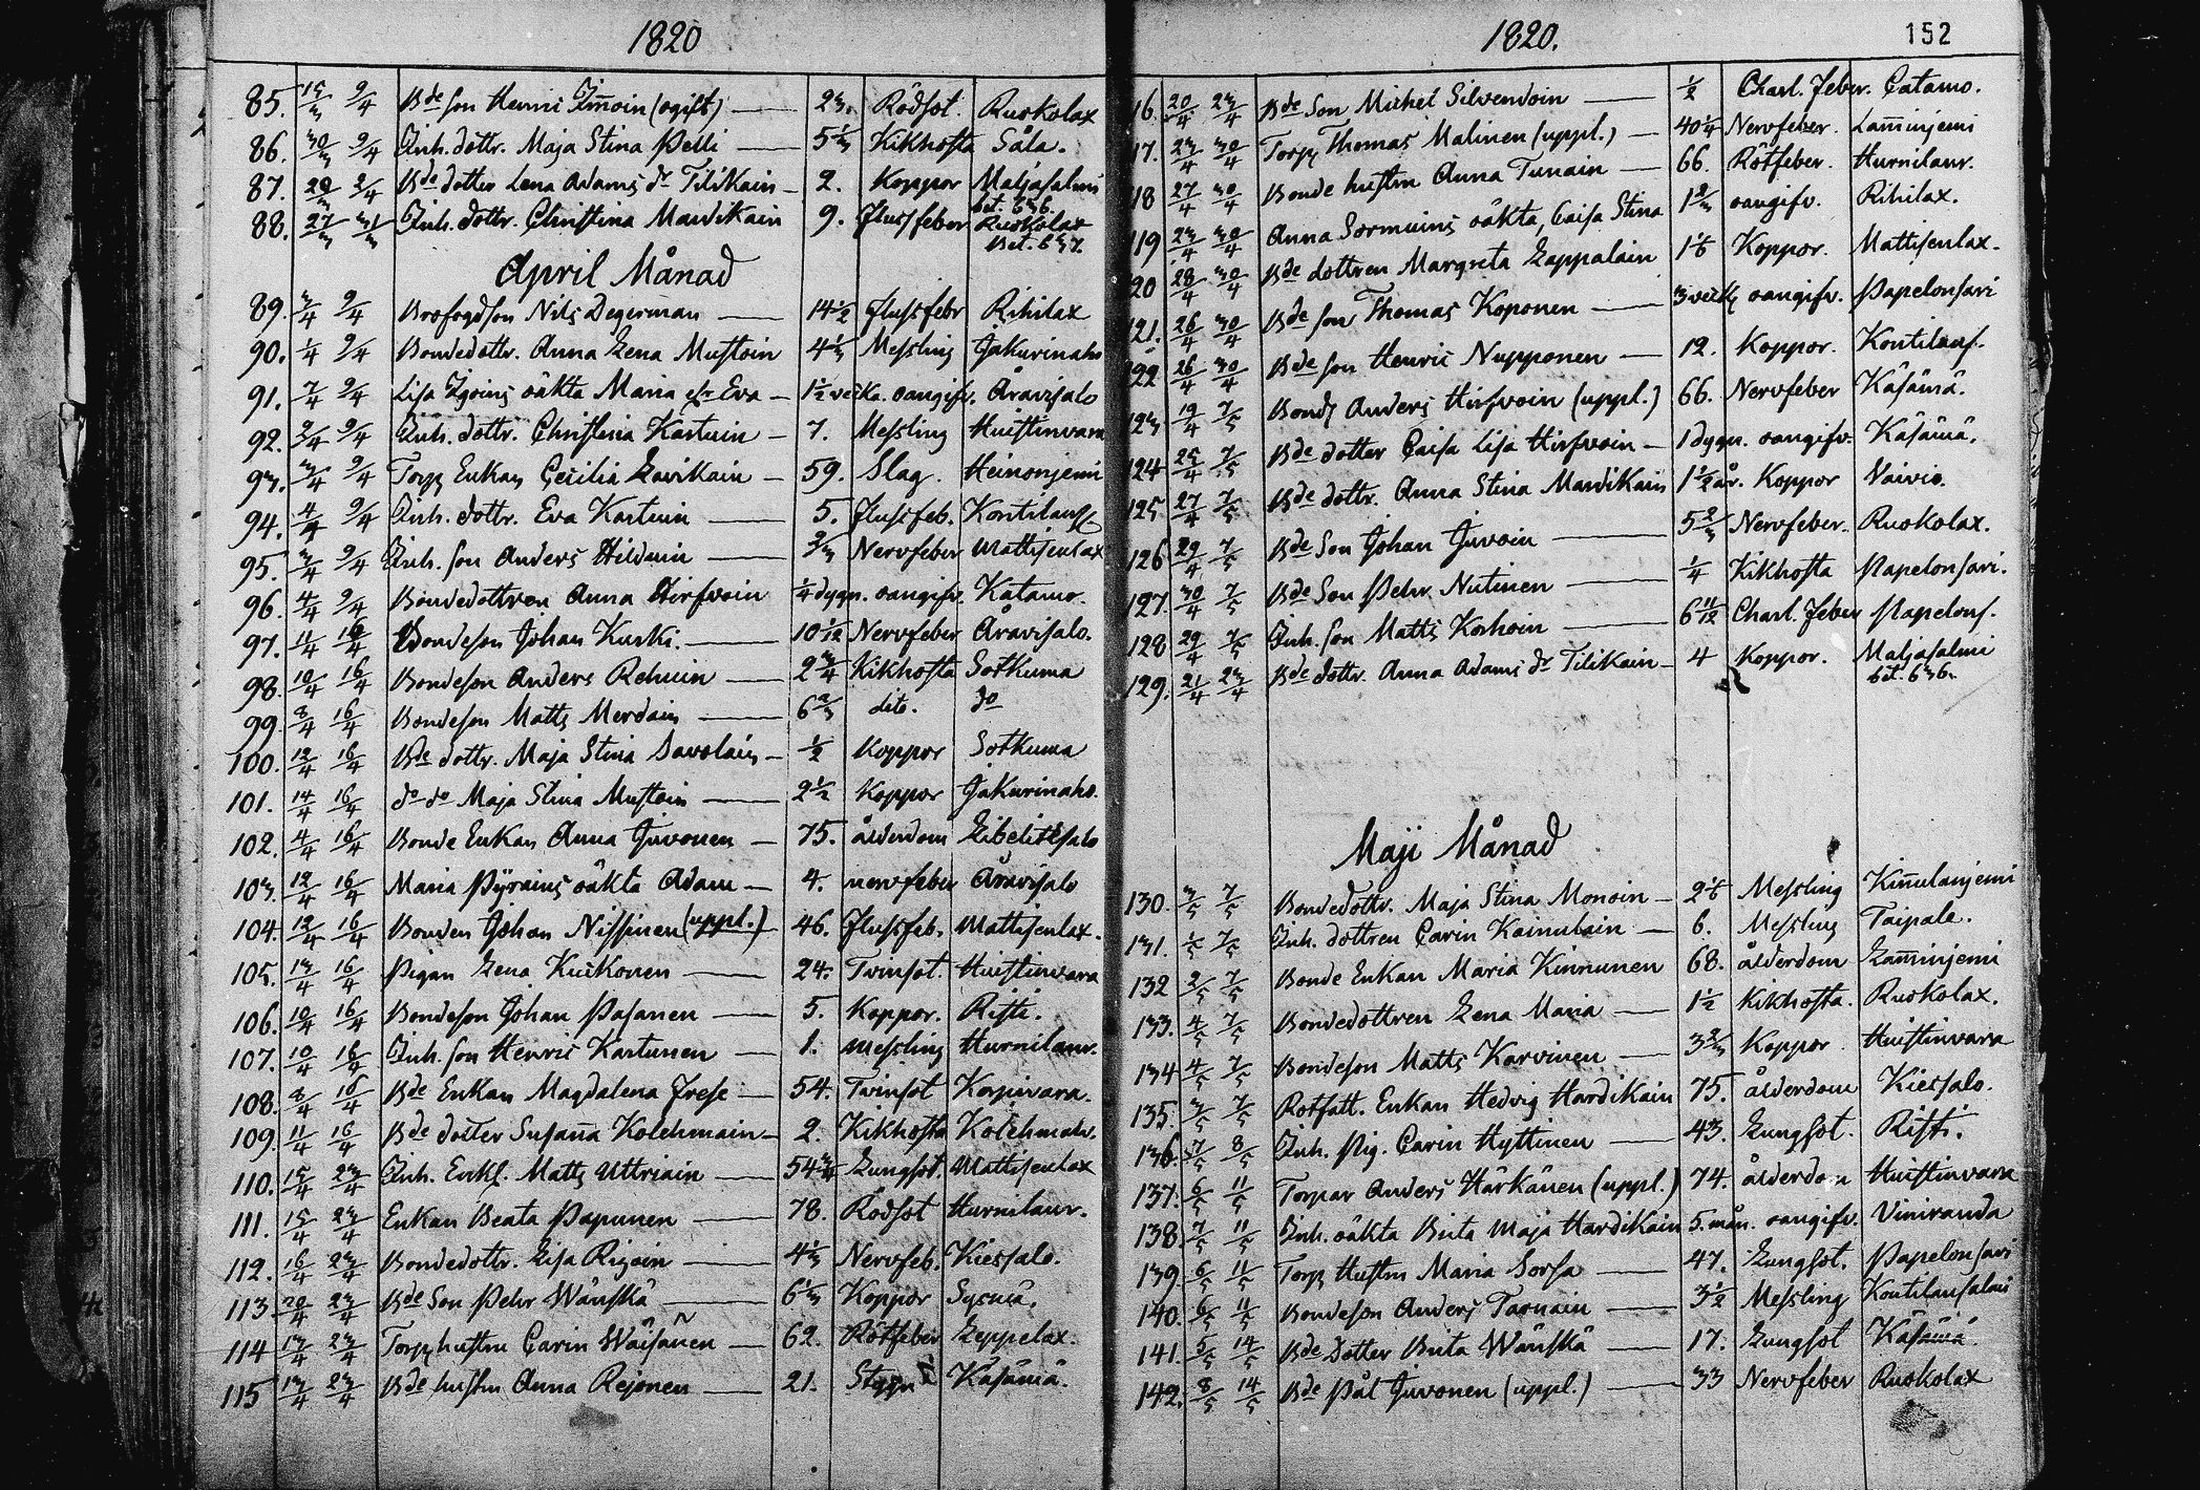 1820
85. 15/3 9/4 Bde son Henric Immoin (ogift) — 23. Rödsot. Ruokolax
86. 30/3 9/4 Inh. dottr. Maja Stina Pelli — 5 1/3 Kikhosta Såla.
87. 29/3 2/4 Bde dotter Lena Adams dr Tilikain — 2. Koppor Maljasalmi
bet. 636.
88. 27/3 31/3 Inh. dottr. Christina Mardikain 9. Flussfeber Ruokolax
Bet. 637.
April Månad
89. 3/4 9/4 Brofogdson Nils Degerman — 14 1/2 flussfebr Rihilax
90. 1/4 9/4 Bondedottr. Anna Lena Mustoin 4 1/3 Messling Jakurinaho
91. 7/4 9/4 Lisa Igoins oäkta Maria elr Eva — 1 1/2 vecka. oangifv. Åravisalo
92. 9/4 9/4 Inh. dottr. Christina Kartuin — 7. Messling Huistinvara
93. 3/4 9/4 Torp Enkan Cecilia Lavikain — 59. Slag. Heinonjemi
94. 4/4 9/4 Inh. dottr. Eva Kartuin — 5. Flussfeb. Kontilauss
95. 3/4 9/4 Inh. son Anders Hilduin — 2/3 Nervfeber Mattisenlax
96. 4/4 9/4 Bondedottren Anna Hirfvoin 1/4 dygn. oangifv. Katamo.
97. 11/4 16/4 Bondeson Johan Kurki. — 10 1/12 Nervfeber Åravisalo.
98. 10/4 16/4 Bondeson Anders Rehuin — 2 3/4 Kikhosta Sotkuma
99. 8/4 16/4 Bondeson Matts Merdain — 6 2/3 dito. do
100. 12/4 16/4 Bde dottr. Maja Stina Savolain — 1/2 Koppor Sotkuma
101. 14/4 16/4 do do Maja Stina Mustoin — 2 1/2 Koppor Jakurinaho.
102. 4/4 16/4 Bonde Enkan Anna Juvonen — 75. ålderdom Libelitssalo
103. 12/4 16/4 Maria Pyrains oäkta Adam — 4. nervfeber Åravisalo
104. 12/4 16/4 Bonden Johan Nissinen (uppl.) 46. Flussfeb. Mattisenlax.
105. 13/4 16/4 Pigan Lena Kuikonen — 24. Tvinsot. Huistinvara
106. 10/4 16/4 Bondeson Johan Pasanen — 5. Koppor. Risti.
107. 10/4 16/4 Inh. son Henric Kartunen — 1. Messling Hurnilaur.
108. 8/4 16/4 Bde Enkan Magdalena Frese — 54. Tvinsot Korpivara.
109. 11/4 16/4 Bde dotter Susanna Kolehmain — 2. Kikhosta Kolehmalv.
110. 15/4 23/4 Inh. Enkl. Matts Uttriain — 54 3/4 Lungsot. Mattisenlax
111. 15/4 23/4 Enkan Beata Papunen — 78. Rödsot Hurnilaur.
112. 16/4 23/4 Bondedottr. Lisa Rigoin — 4 1/3 Nervfeb. Kiessalo.
113 20/4 23/4 Bde Son Pehr Wänskä — 6 1/3 Koppor Sysmä.
114 13/4 23/4 Torp hustru Carin Wäisänen — 62. Rötfeber Leppelax.
115 13/4 23/4 Bde hustru Anna Rejonen — 21. Stygn Käsämä.
1820. 152
16. 20/4 23/4 Bde Son Michel Silvendoin — 1/2 Charl. feber. Catamo.
17. 23/4 30/4 Torp Thomas Malinen (uppl.) — 40 1/4 Nervfeber. Lamminjemi
18 27/4 30/4 Bonde hustru Anna Tunain — 66. Rötfeber. Hurnilaur.
119 23/4 30/4 Anna Sormuins oäkta, Caisa Stina 1 2/3 oangifv. Rihilax.
20 28/4 30/4 Bde dottren Margreta Lappalain 1 1/6 Koppor. Mattisenlax.
121. 26/4 30/4 Bde son Thomas Koponen — 3 veck oangifv. Papelonsari
122 26/4 30/4 Bde son Henric Nupponen — 12. Koppor. Kontilaus.
123 19/4 7/5 Bond Anders Hirfvoin (uppl.) 66. Nervfeber Käsämä.
124 25/4 7/5 Bde dotter Caisa Lisa Hirfvoin — 1 dygn. oangifv. Käsämä.
125 27/4 7/5 Bde dottr. Anna Stina Mardikain 1 1/2 år. Koppor Vaivio.
126 29/4 7/5 Bde Son Johan Juvoin — 5 2/3 Nervfeber. Ruokolax.
127. 30/4 7/5 Bde Son Pehr Nutinen — 1/4 Kikhosta Papelonsari.
128 29/4 7/5 Inh. son Matts Korhoin — 6 11/12 Charl. Feber Papelons.
129. 21/4 23/4 Bde dottr. Anna Adams dr Tilikain — 4 Koppor. Maljasalmi
bet. 636.
Maji Månad
130. 3/5 7/5 Bondedottr. Maja Stina Monoin — 2 1/6 Messling Kinnulanjemi
131. 1/5 7/5 Inh. dottren Carin Kainulain — 6. Messling Taipale.
132 2/5 7/5 Bonde Enkan Maria Kinnunen 68. ålderdom Lamminjemi
133. 4/5 7/5 Bondedottren Lena Maria — 1 1/2 Kikhosta. Ruokolax.
134 4/5 7/5 Bondeson Matts Karvinen — 3 2/3 Koppor Huistinvara
135. 3/5 7/5 Rotfatt. Enkan Hedvig Hardikain 75. ålderdom Kiessalo.
136. 7/5 8/5 Inh. Pig. Carin Hyttinen — 43. Lungsot. Risti.
137. 6/5 11/5 Torpar Anders Härkänen (uppl.) 74. ålderdom Huistinvara
138. 7/5 11/5 Inh. oäkta Brita Maja Hardikain 5. mån. oangifv. Viniranda
139. 6/5 11/5 Torp Hustru Maria Sorsa — 47. Lungsot. Papelonsari
140. 6/5 11/5 Bondeson Anders Taonain — 3 1/2 Messling Kontilansalmi
141. 5/5 14/5 Bde Dotter Brita Wänskä — 17. Lungsot Käsämä.
142. 8/5 14/5 Bde Pål Juvonen (uppl.) — 33 Nervfeber Ruokolax